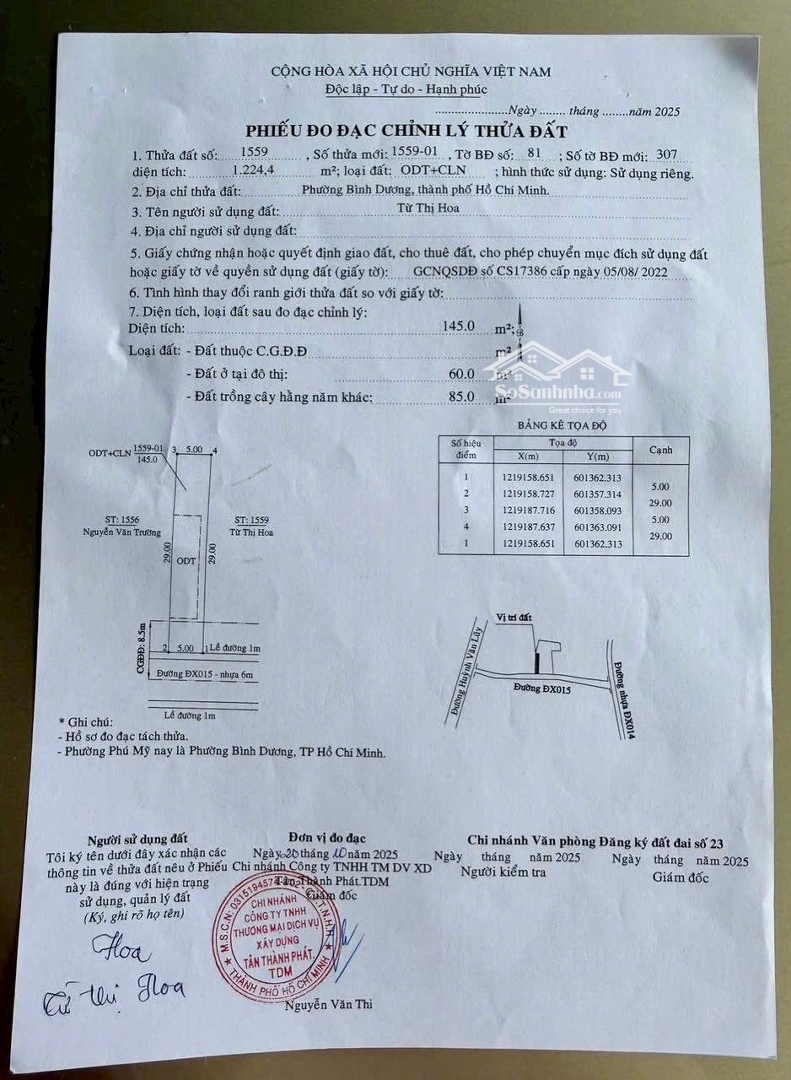 CỘNG HÒA XÃ HỘI CHỦ NGHĨA VIỆT NAM
Độc lập - Tự do - Hạnh phúc
........................Ngày ........ tháng ........năm 2025
PHIẾU ĐO ĐẠC CHỈNH LÝ THỬA ĐẤT
1. Thửa đất số: 1559 , Số thửa mới: 1559-01 , Tờ BĐ số: 81 ; Số tờ BĐ mới: 307
diện tích: 1.224,4 m²; loại đất: ODT+CLN ; hình thức sử dụng: Sử dụng riêng.
2. Địa chỉ thửa đất: Phường Bình Dương, thành phố Hồ Chí Minh.
3. Tên người sử dụng đất: Từ Thị Hoa
4. Địa chỉ người sử dụng đất:
5. Giấy chứng nhận hoặc quyết định giao đất, cho thuê đất, cho phép chuyển mục đích sử dụng đất
hoặc giấy tờ về quyền sử dụng đất (giấy tờ): GCNQSDĐ số CS17386 cấp ngày 05/08/ 2022
6. Tình hình thay đổi ranh giới thửa đất so với giấy tờ:
7. Diện tích, loại đất sau đo đạc chỉnh lý:
Diện tích: 145.0 m²;
Loại đất: - Đất thuộc C.G.Đ.Đ m²
- Đất ở tại đô thị: 60.0 m²
- Đất trồng cây hằng năm khác: 85.0 m²
SoSanhnha.com
Great choice for you
BẢNG KÊ TỌA ĐỘ
Số hiệu điểm Tọa độ Cạnh
X(m) Y(m)
1 1219158.651 601362.313
5.00
2 1219158.727 601357.314
29.00
3 1219187.716 601358.093
5.00
4 1219187.637 601363.091
29.00
1 1219158.651 601362.313
ODT+CLN 1559-01
145.0
3 5.00 4
ST: 1556
Nguyễn Văn Trường
ST: 1559
Từ Thị Hoa
29.00
29.00
ODT
CGĐĐ: 8.5m
2 5.00 1 Lề đường 1m
Đường ĐX015 - nhựa 6m
Lề đường 1m
Vị trí đất
Đường Huỳnh Văn Lũy
Đường ĐX015
Đường nhựa ĐX014
* Ghi chú:
- Hồ sơ đo đạc tách thửa.
- Phường Phú Mỹ nay là Phường Bình Dương, TP Hồ Chí Minh.
Người sử dụng đất
Tôi ký tên dưới đây xác nhận các
thông tin về thửa đất nêu ở Phiếu
này là đúng với hiện trạng
sử dụng, quản lý đất
(Ký, ghi rõ họ tên)
Hoa
Từ Thị Hoa
Đơn vị đo đạc
Ngày 20 tháng 10 năm 2025
Chi nhánh Công ty TNHH TM DV XD
Tân Thành Phát.TDM
Giám đốc
CHI NHÁNH
CÔNG TY TNHH
THƯƠNG MẠI DỊCH VỤ
XÂY DỰNG
TÂN THÀNH PHÁT.
TDM
THÀNH PHỐ HỒ CHÍ MINH
Nguyễn Văn Thi
Chi nhánh Văn phòng Đăng ký đất đai số 23
Ngày tháng năm 2025
Người kiểm tra
Ngày tháng năm 2025
Giám đốc